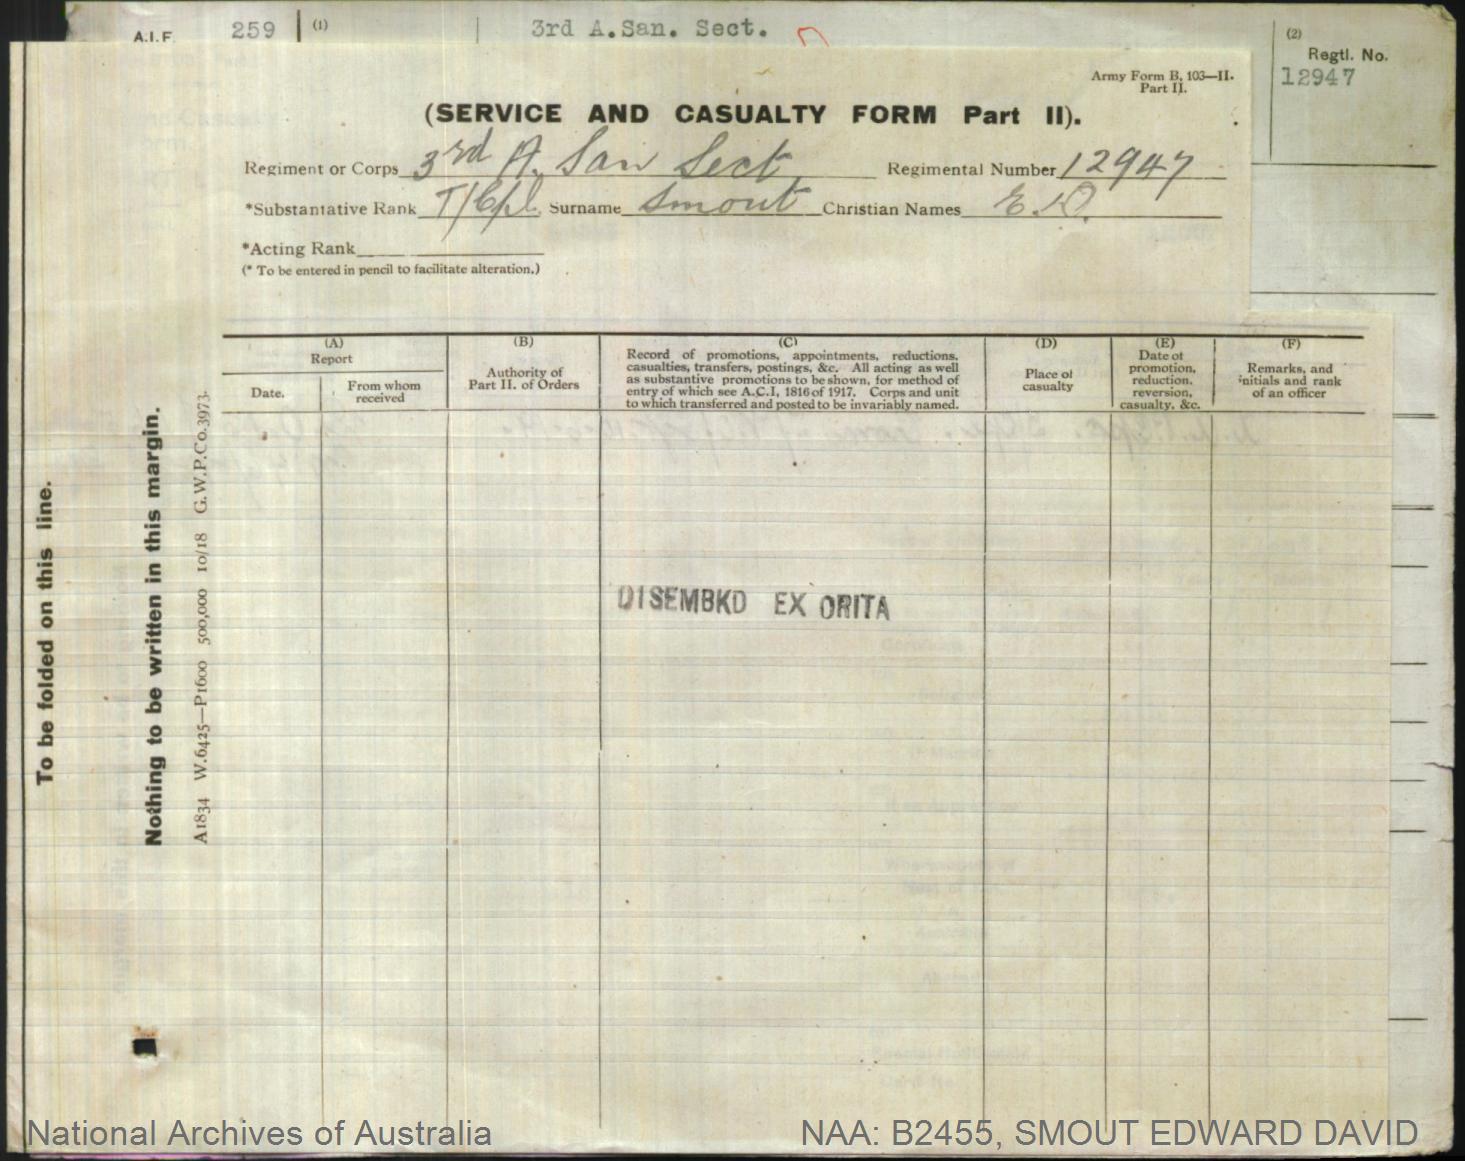 A.I.F. 259 (1) 3rd A.San. Sect. (2)
Regtl. No.
12947
Army Form B. 103—II.
Part II.
(SERVICE AND CASUALTY FORM Part II).
Regiment or Corps 3rd A. San Sect Regimental Number 12947
*Substantive Rank T/Cpl. Surname Smout Christian Names E. D.
*Acting Rank
(* To be entered in pencil to facilitate alteration.)
(A)
Report
Date.
From whom
received
(B)
Authority of
Part II. of Orders
(C)
Record of promotions, appointments, reductions,
casualties, transfers, postings, &c. All acting as well
as substantive promotions to be shown, for method of
entry of which see A.C.I, 1816 of 1917. Corps and unit
to which transferred and posted to be invariably named.
(D)
Place of
casualty
(E)
Date of
promotion,
reduction,
reversion,
casualty, &c.
(F)
Remarks, and
initials and rank
of an officer
DISEMBKD EX ORITA
To be folded on this line.
Nothing to be written in this margin.
A1834 W.6425—P1600 500,000 10/18 G.W.P.Co.3973.
National Archives of Australia
NAA: B2455, SMOUT EDWARD DAVID